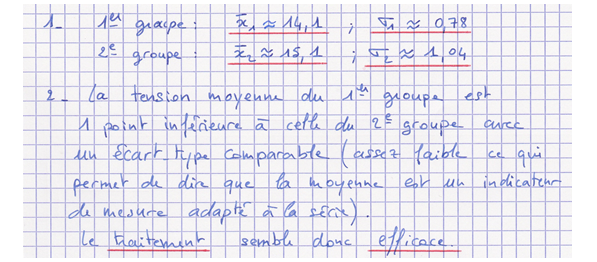 1_ 1er groupe : x̄₁ ≈ 14,1 ; σ₁ ≈ 0,78
2e groupe : x̄₂ ≈ 15,1 ; σ₂ ≈ 1,04
2_ La tension moyenne du 1er groupe est
1 point inférieure à celle du 2e groupe avec
un écart-type comparable (assez faible ce qui
permet de dire que la moyenne est un indicateur
de mesure adapté à la série).
Le traitement semble donc efficace.